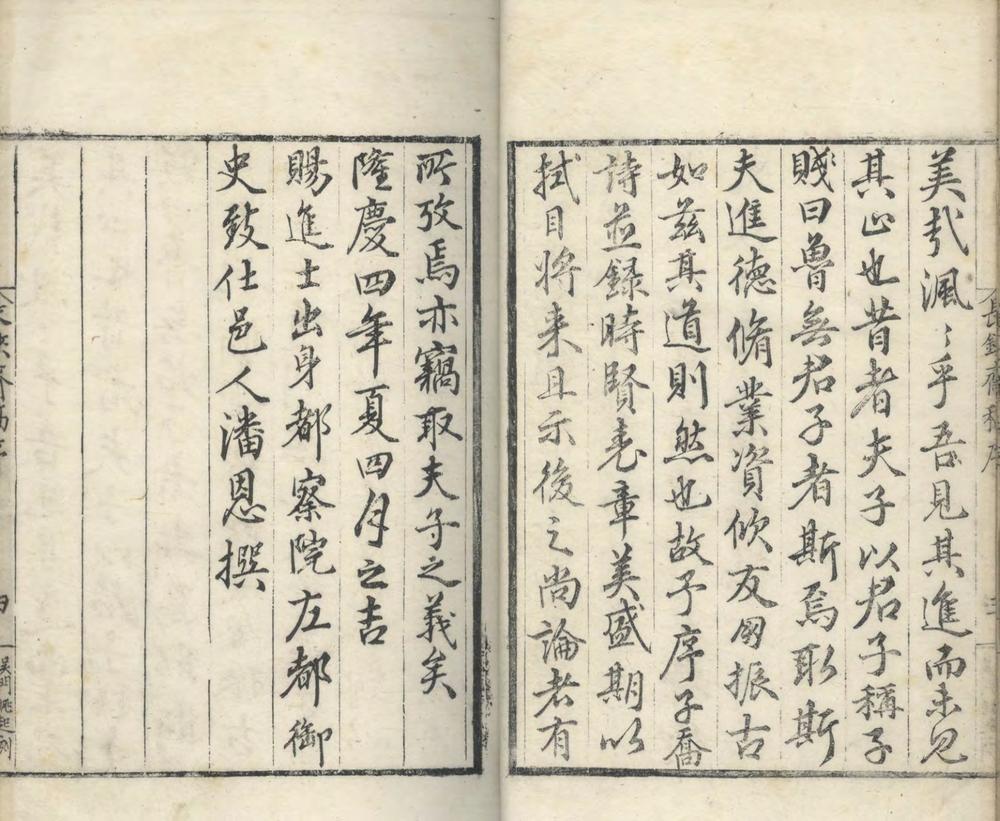 長鋏齋稿序
美哉渢〻乎吾見其進而未見
其止也昔者夫子以君子稱子
賤曰魯無君子者斯焉取斯
夫進德脩業資友固振古
如茲其道則然也故予序子喬
詩並録時賢表章美盛期以
拭目將来且示後之尚論者有
所攷焉亦竊取夫子之義矣
隆慶四年夏四月之吉
賜進士出身都察院左都御
史致仕邑人潘恩撰
四
吳門姚起刻